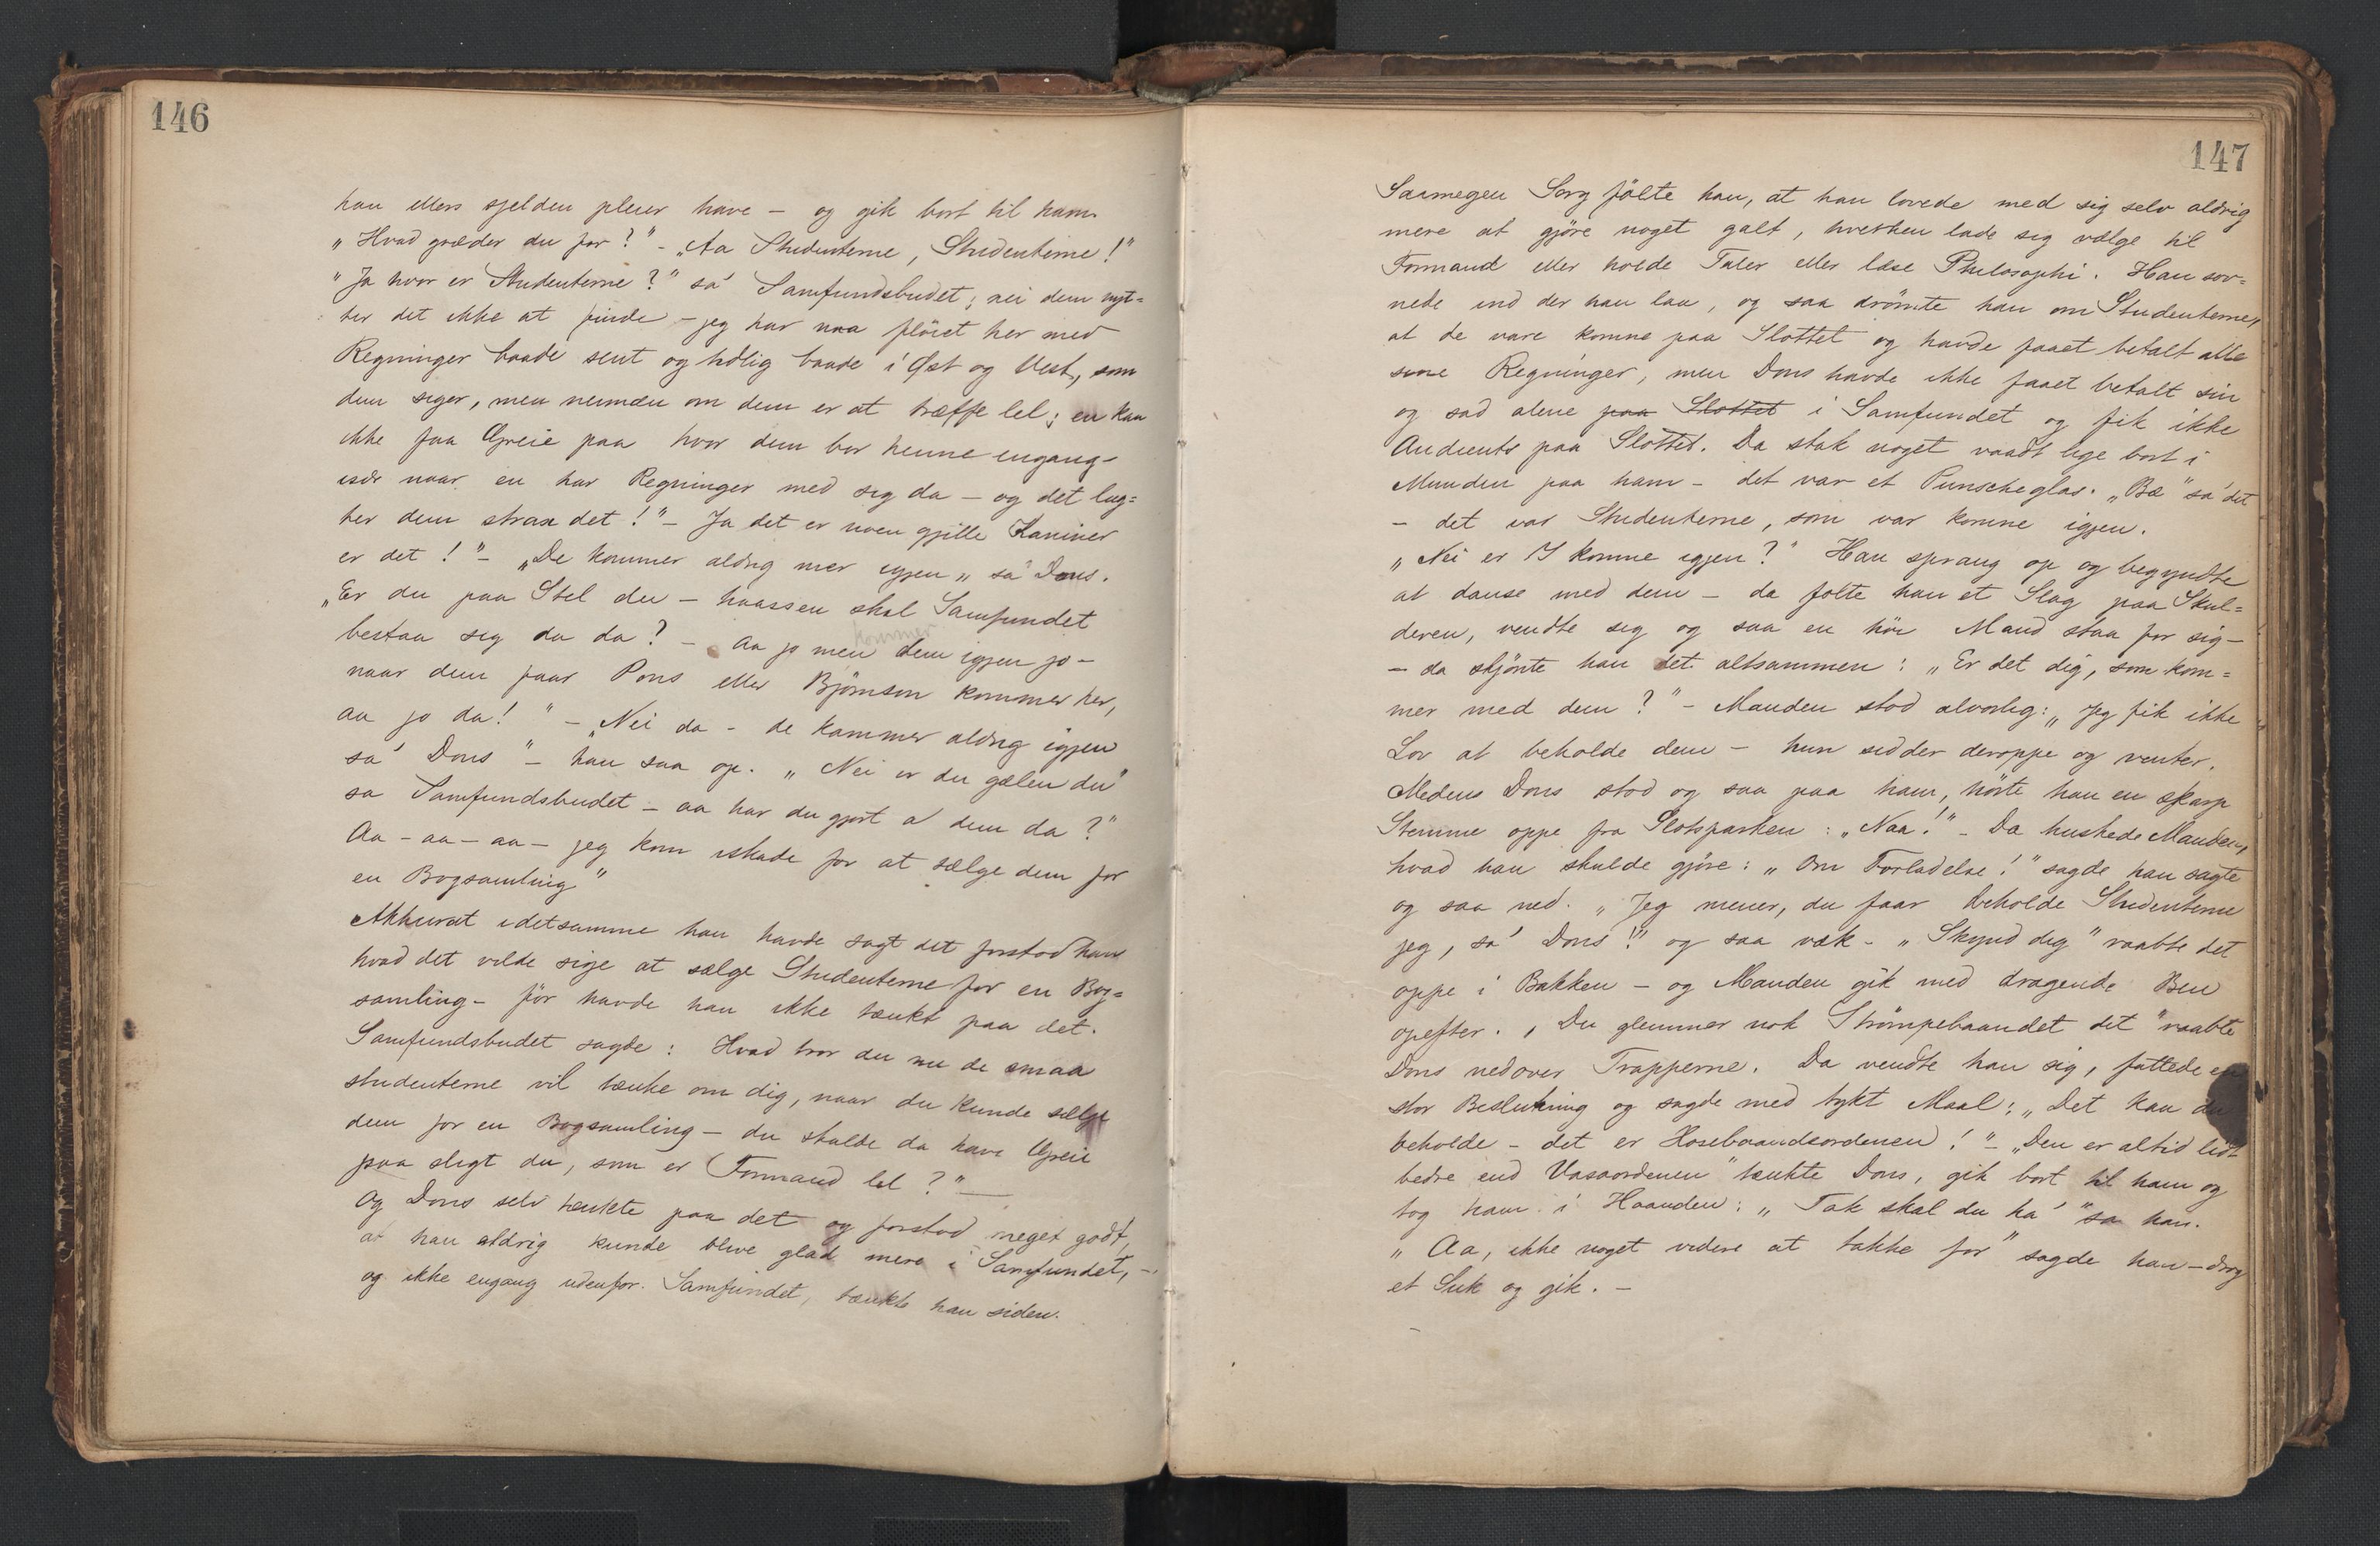 146
han ellers sjelden pleier have – og gik bort til ham.
„Hvad græder du for?" – „Aa Studenterne, Studenterne!"
"Ja hvor er Studenterne?" sa' Samfundsbudet; nei dem nyt=
ter det ikke at finde – jeg har naa flöiet her med
Regninger baade sent og tidlig baade i Øst og Vest, som
dem siger, men neimæn om dem er at træffe lel; en kan
ikke faa Greie paa hvor dem bor henne engang –
især naar en har Regninger med sig da – og det lug=
ter dem strax det!" – Ja det er noen gjille Kaniner
er det!" – „De kommer aldrig mer igjen" sa' Dons.
„Er du paa Stel du – haassen skal Samfundet
bestaa sig da da? – Aa jo men kommer dem igjen jo –
naar dem faar Pons eller Bjørnson kommer her,
aa jo da!" – „Nei da – de kommer aldrig igjen
sa' Dons" – han saa op. „Nei er du gælen du"
sa Samfundsbudet – aa har du gjort a' dem da?"
Aa – aa – aa – jeg kom iskade for at sælge dem for
en Bogsamling"
Akkurat idetsamme han havde sagt det forstod han
hvad det vilde sige at sælge Studenterne for en Bog=
samling – för havde han ikke tænkt paa det.
Samfundsbudet sagde: Hvad tror du nu de smaa
studenterne vil tænke om dig, naar du kunde sælge
dem for en Bogsamling – du skulde da have Greie
paa sligt du, som er Formand lel?" —
Og Dons selv tænkte paa det og forstod meget godt,
at han aldrig kunde blive glad mere i Samfundet, –
og ikke engang udenfor Samfundet, tænkte han siden.
147
Saamegen Sorg fölte han, at han lovede med sig selv aldrig
mere at gjöre noget galt, hverken lade sig vælge til
Formand eller holde Taler eller læse Philosophi. Han sov=
nede ind der han laa, og saa drömte han om Studenterne,
at de vare komne paa Slottet og havde faaet betalt alle
sine Regninger, men Dons havde ikke faaet betalt sin
og sad alene paa Slottet i Samfundet og fik ikke
Audients paa Slottet. Da stak noget vaadt lige bort i
Munden paa ham – det var et Punscheglas. „Bæ" sa' det
– det var Studenterne, som var komne igjen.
„Nei er I komne igjen?" Han sprang op og begyndte
at danse med dem – da følte han et Slag paa Skul=
deren, vendte sig og saa en höi Mand staa for sig –
– da skjönte han det altsammen: „Er det dig, som kom=
mer med dem?" – Manden stod alvorlig: „Jeg fik ikke
Lov at beholde dem – hun sidder deroppe og venter.
Medens Dons stod og saa paa ham, hörte han en skarp
Stemme oppe fra Slotsparken: „Naa!" – Da huskede Manden,
hvad han skulde gjöre: „Om Forladelse!" sagde han sagte
og saa ned. „Jeg mener, du faar beholde Studenterne
jeg, sa' Dons!" og saa væk – „Skynd dig" raabte det
oppe i Bakken – og Manden gik med dragende Ben
opefter. „Du glemmer nok Strömpebaandet det" raabte
Dons nedover Trapperne. Da vendte han sig, fattede en
stor Beslutning og sagde med tykt Maal: „Det kan du
beholde – det er Hosebaandsordenen!" – „Den er altid lidt
bedre end Vasaordenen" tænkte Dons, gik bort til ham og
tog ham i Haanden: „Tak skal du ha'" sa han.
„Aa, ikke noget videre at takke for" sagde han – drog
et Suk og gik. –